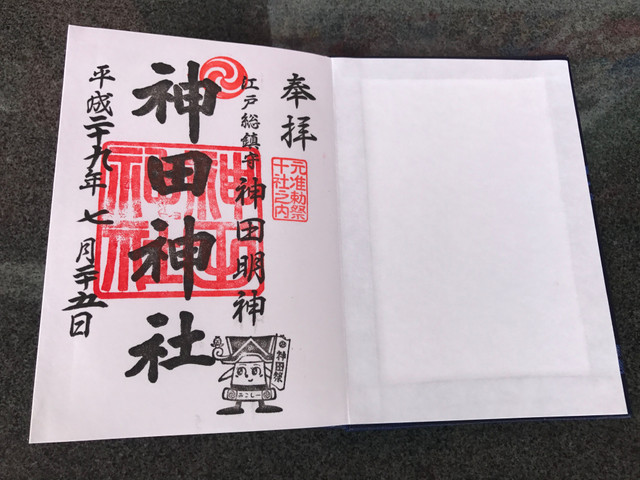 奉拝
元准勅祭
十社之内
江戸総鎮守 神田明神
神田神社
平成二十九年 七月二十五日
神田
神社
神田祭
みこしー